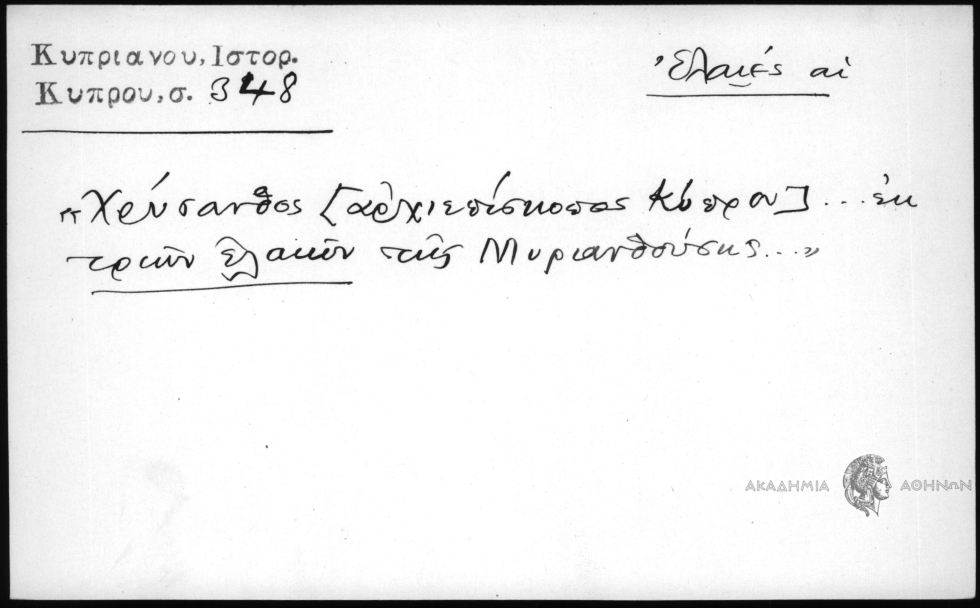 Κυπριανου, Ιστορ.
Κυπρου, σ. 348
Ἐλαιές αἱ
"Χρύσανθος [ἀρχιεπίσκοπος Κύπρου] ... ἐκ
τριῶν ἐλαιῶν τῆς Μυριανθούσης ..."
ΑΚΑΔΗΜΙΑ ΑΘΗΝΩΝ